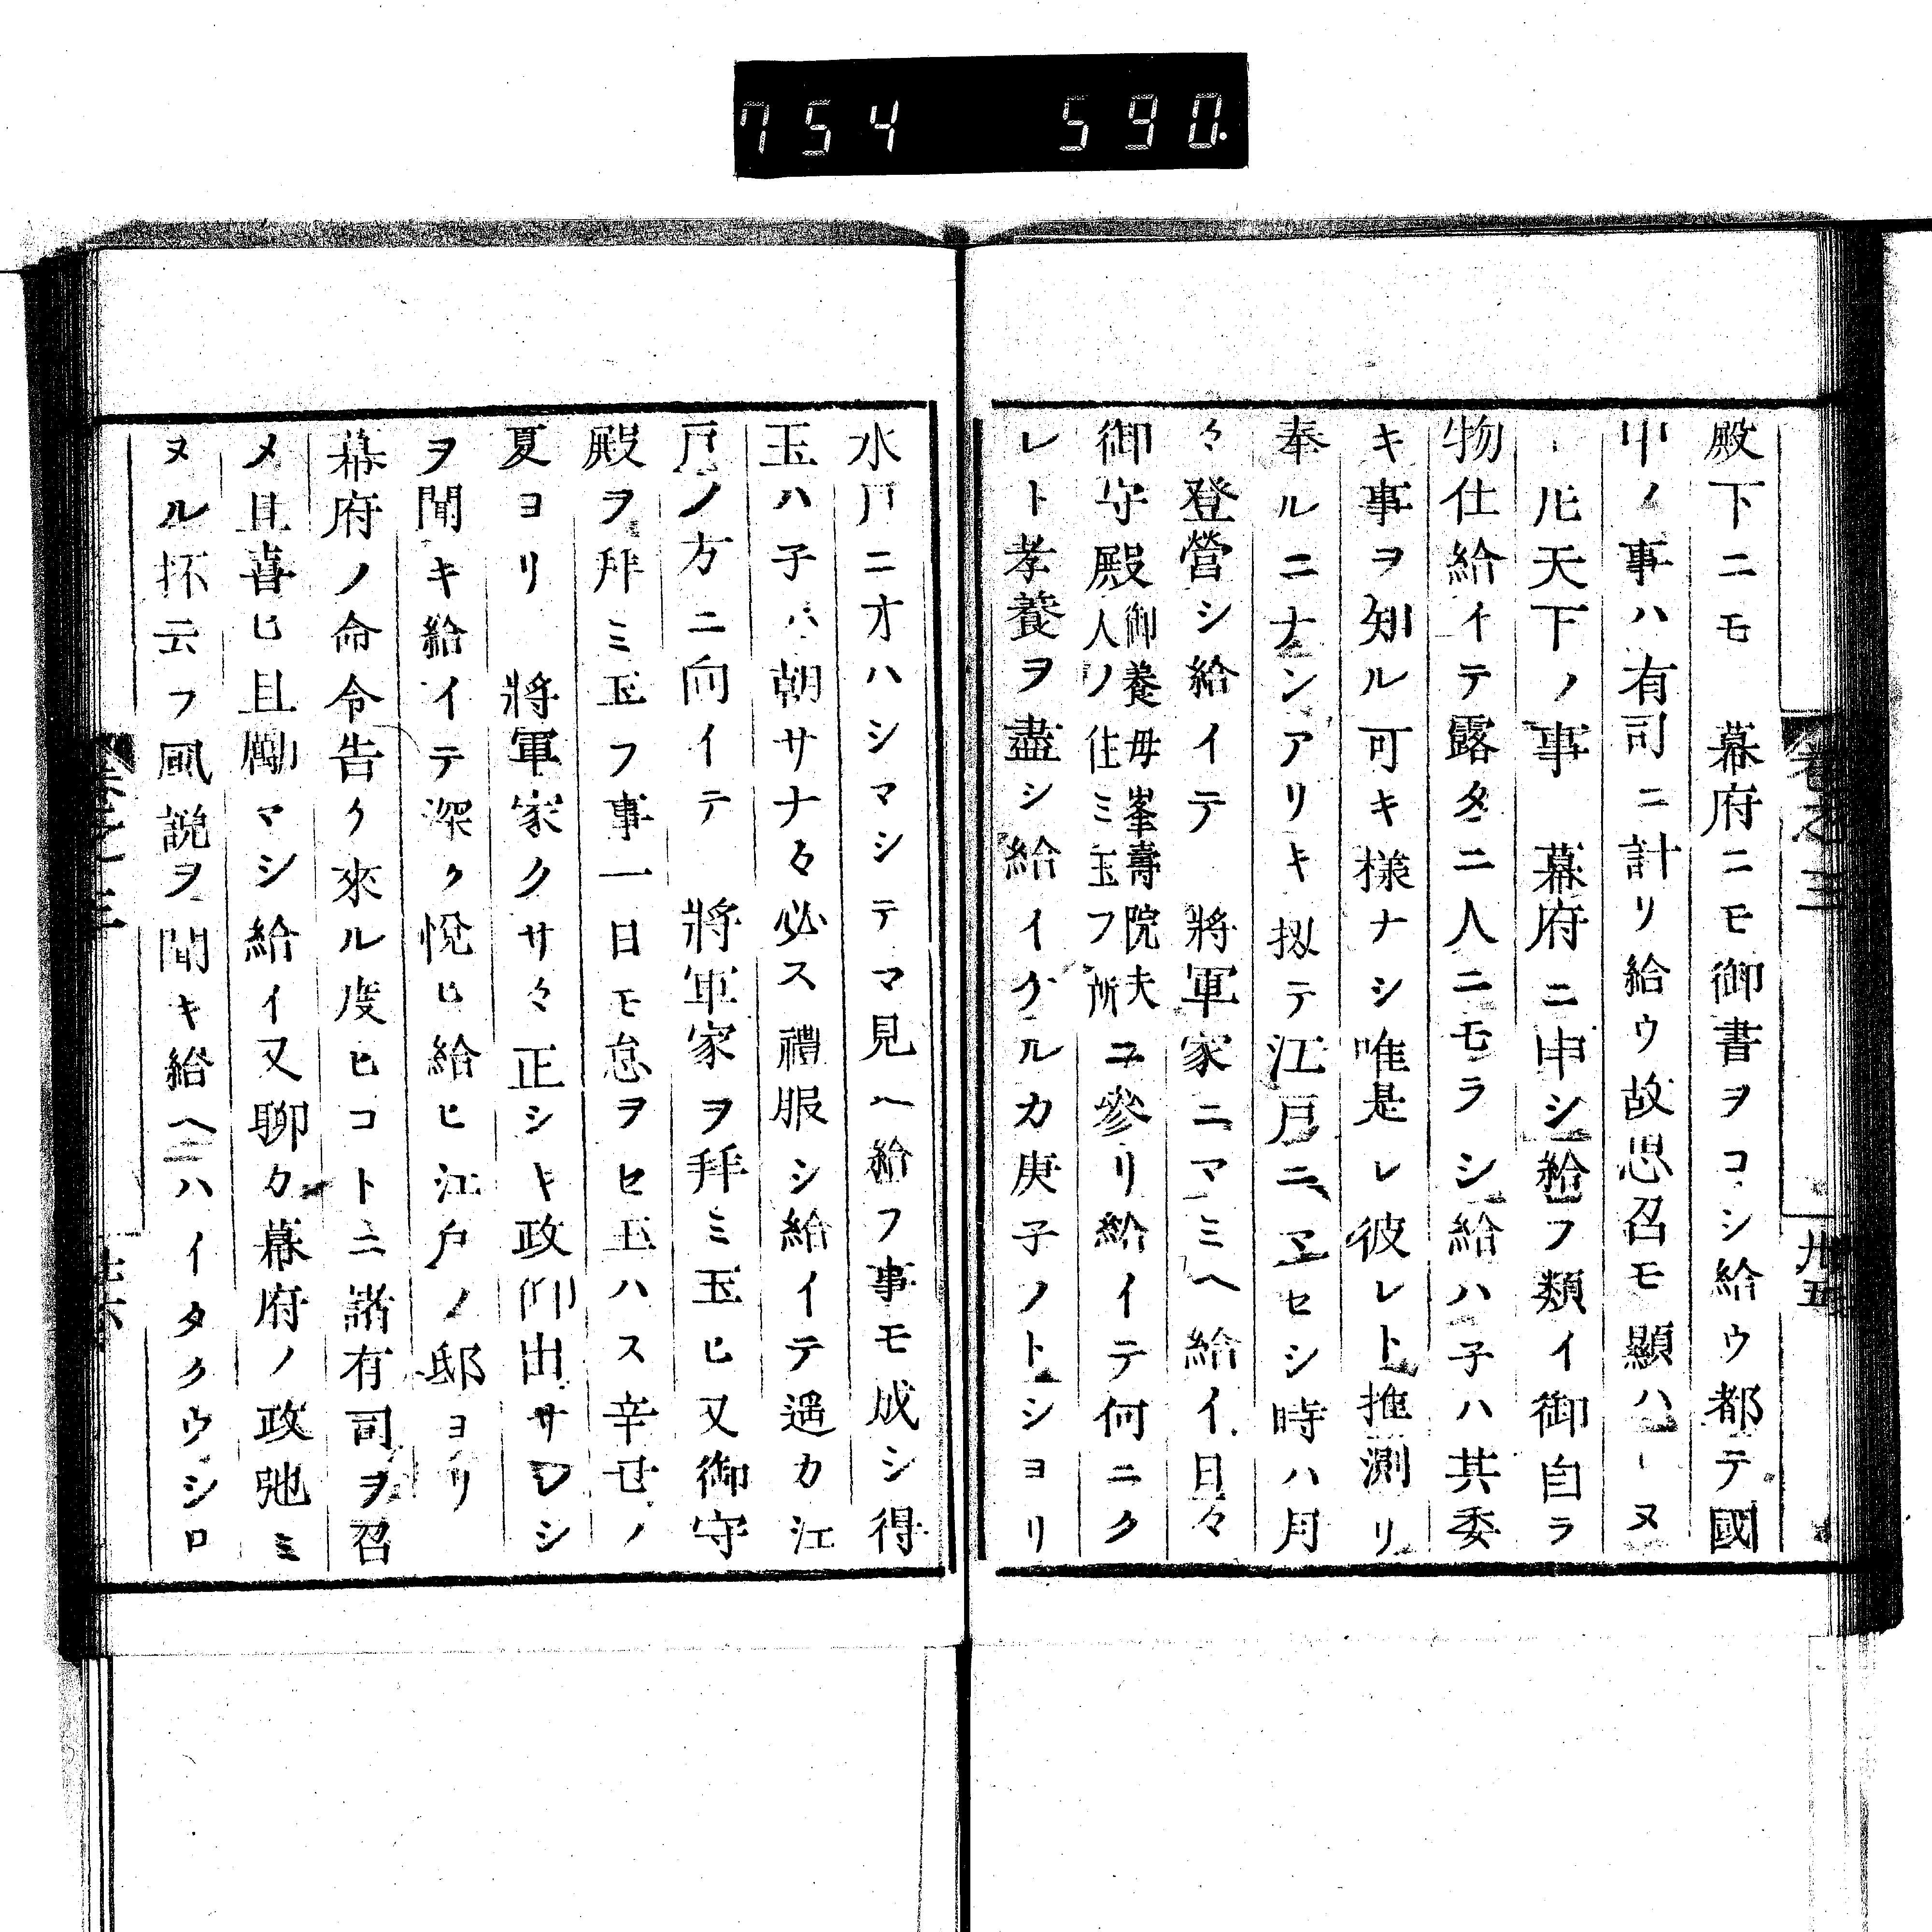 754 590.
卷之三
卅五
殿下ニモ　幕府ニモ御書ヲコシ給ウ都テ國
中ノ事ハ有司ニ計リ給ウ故思召モ顯ハーヌ
𪜈天下ノ事　幕府ニ申シ給フ類イ御自ラ
物仕給イテ露タニ人ニモラシ給ハ子ハ其委
キ事ヲ知ル可キ樣ナシ唯是レ彼レト推測リ
奉ルニナンアリキ扨テ江戸ニヱセシ時ハ月
々登營シ給イテ　將軍家ニマミヘ給イ日々
御守殿御養母峯壽院夫人ノ住ミ玉フ所ニ參リ給イテ何ニク
レト孝養ヲ盡シ給イグルカ庚子ノトシヨリ
水戸ニオハシマシテマ見ヘ給フ事モ成シ得
玉ハ子バ朝サナ々必ス禮服シ給イテ遥カ江
戸ノ方ニ向イテ　將軍家ヲ拜ミ玉ヒ又御守
殿ヲ拜ミ玉フ事一日モ怠ヲセ玉ハス辛丑ノ
夏ヨリ　將軍家クサ々正シキ政仰出サレシ
ヲ聞キ給イテ深ク悅ヒ給ヒ江戸ノ邸ヨリ
幕府ノ命令告ケ來ル度ヒコトニ諸有司ヲ召
メ且喜ヒ且勵マシ給イ又聊カ幕府ノ政弛ミ
ヌル抔云フ風説ヲ聞キ給ヘハイタクウシロ